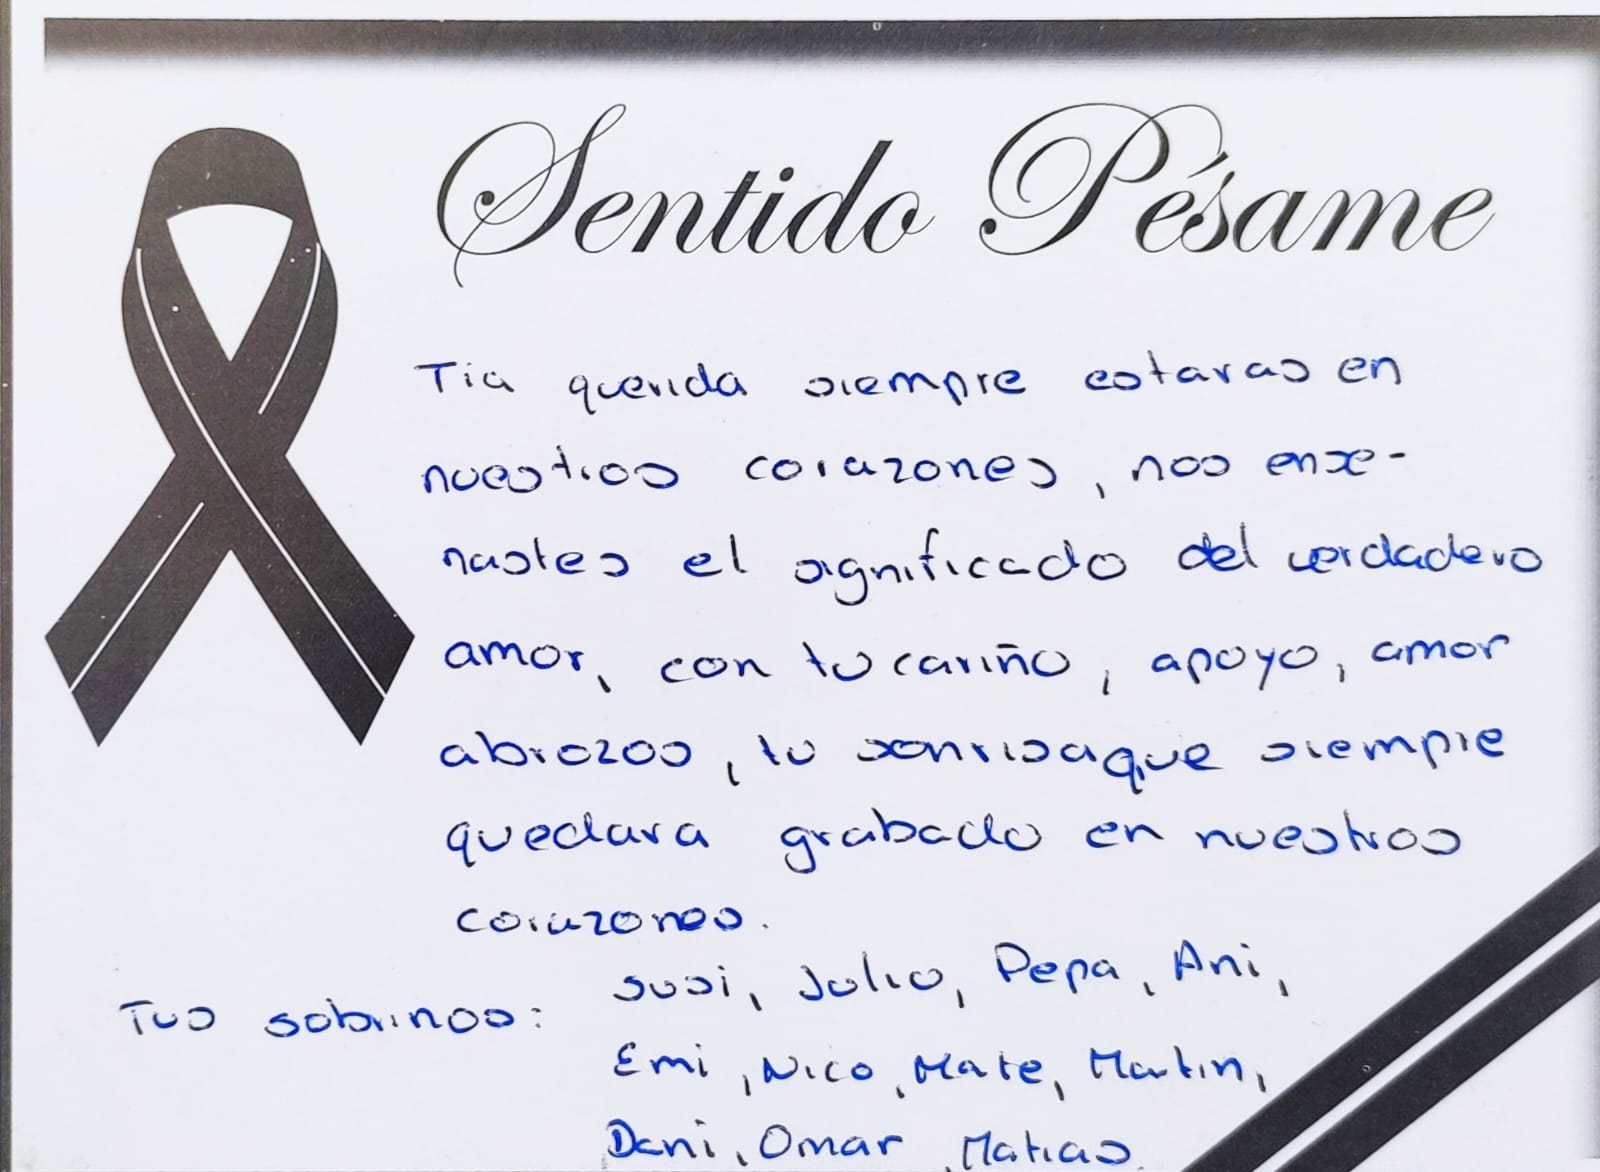 Sentido Pésame
Tia querida siempre estaras en
nuestros corazones, nos ense-
nastes el significado del verdadero
amor, con tu cariño, apoyo, amor
abrazos, tu sonrisa que siempre
quedara grabado en nuestros
corazones.
Tus sobrinos: Susi, Julio, Pepa, Ani,
Emi, Nico, Mate, Martin,
Dani, Omar, Matias